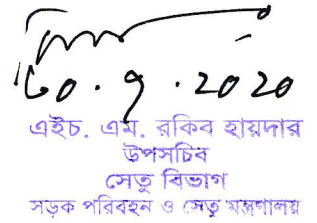 ৩০.৭.২০২০
এইচ. এম. রকিব হায়দার
উপসচিব
সেতু বিভাগ
সড়ক পরিবহন ও সেতু মন্ত্রণালয়